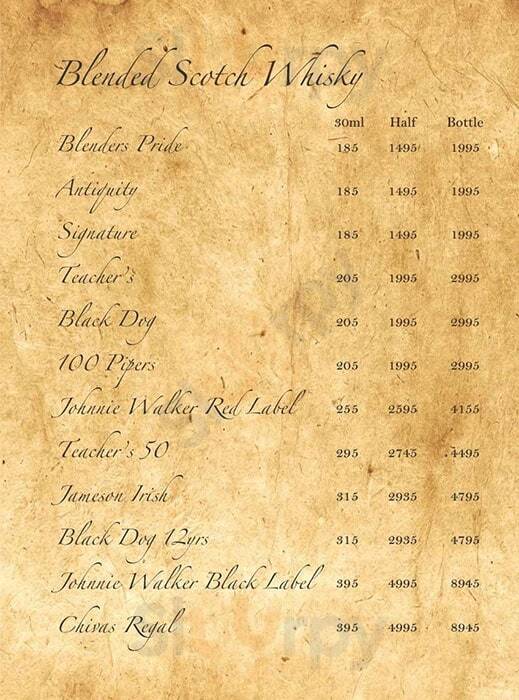 Blended Scotch Whisky
30ml Half Bottle
Blenders Pride 185 1495 1995
Antiquity 185 1495 1995
Signature 185 1495 1995
Teacher's 205 1995 2995
Black Dog 205 1995 2995
100 Pipers 205 1995 2995
Johnnie Walker Red Label 255 2595 4155
Teacher's 50 295 2745 4495
Jameson Irish 315 2935 4795
Black Dog 12yrs 315 2935 4795
Johnnie Walker Black Label 395 4995 8945
Chivas Regal 395 4995 8945